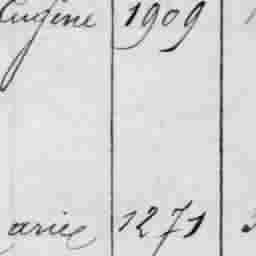 Eugène 1909
arie 1271